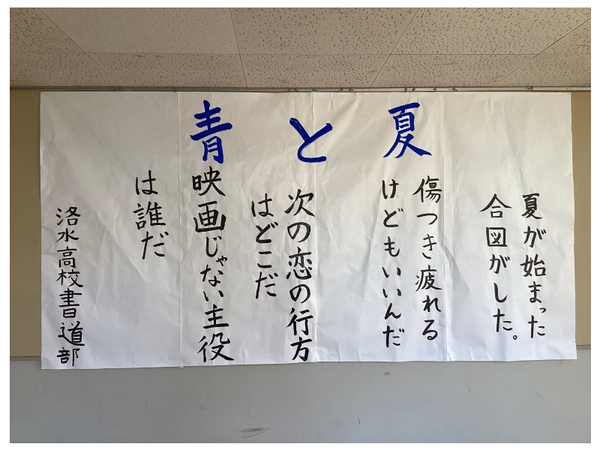 夏が始まった
合図がした。
傷つき疲れる
けどもいいんだ
次の恋の行方
はどこだ
映画じゃない主役
は誰だ
青と夏
洛水高校書道部